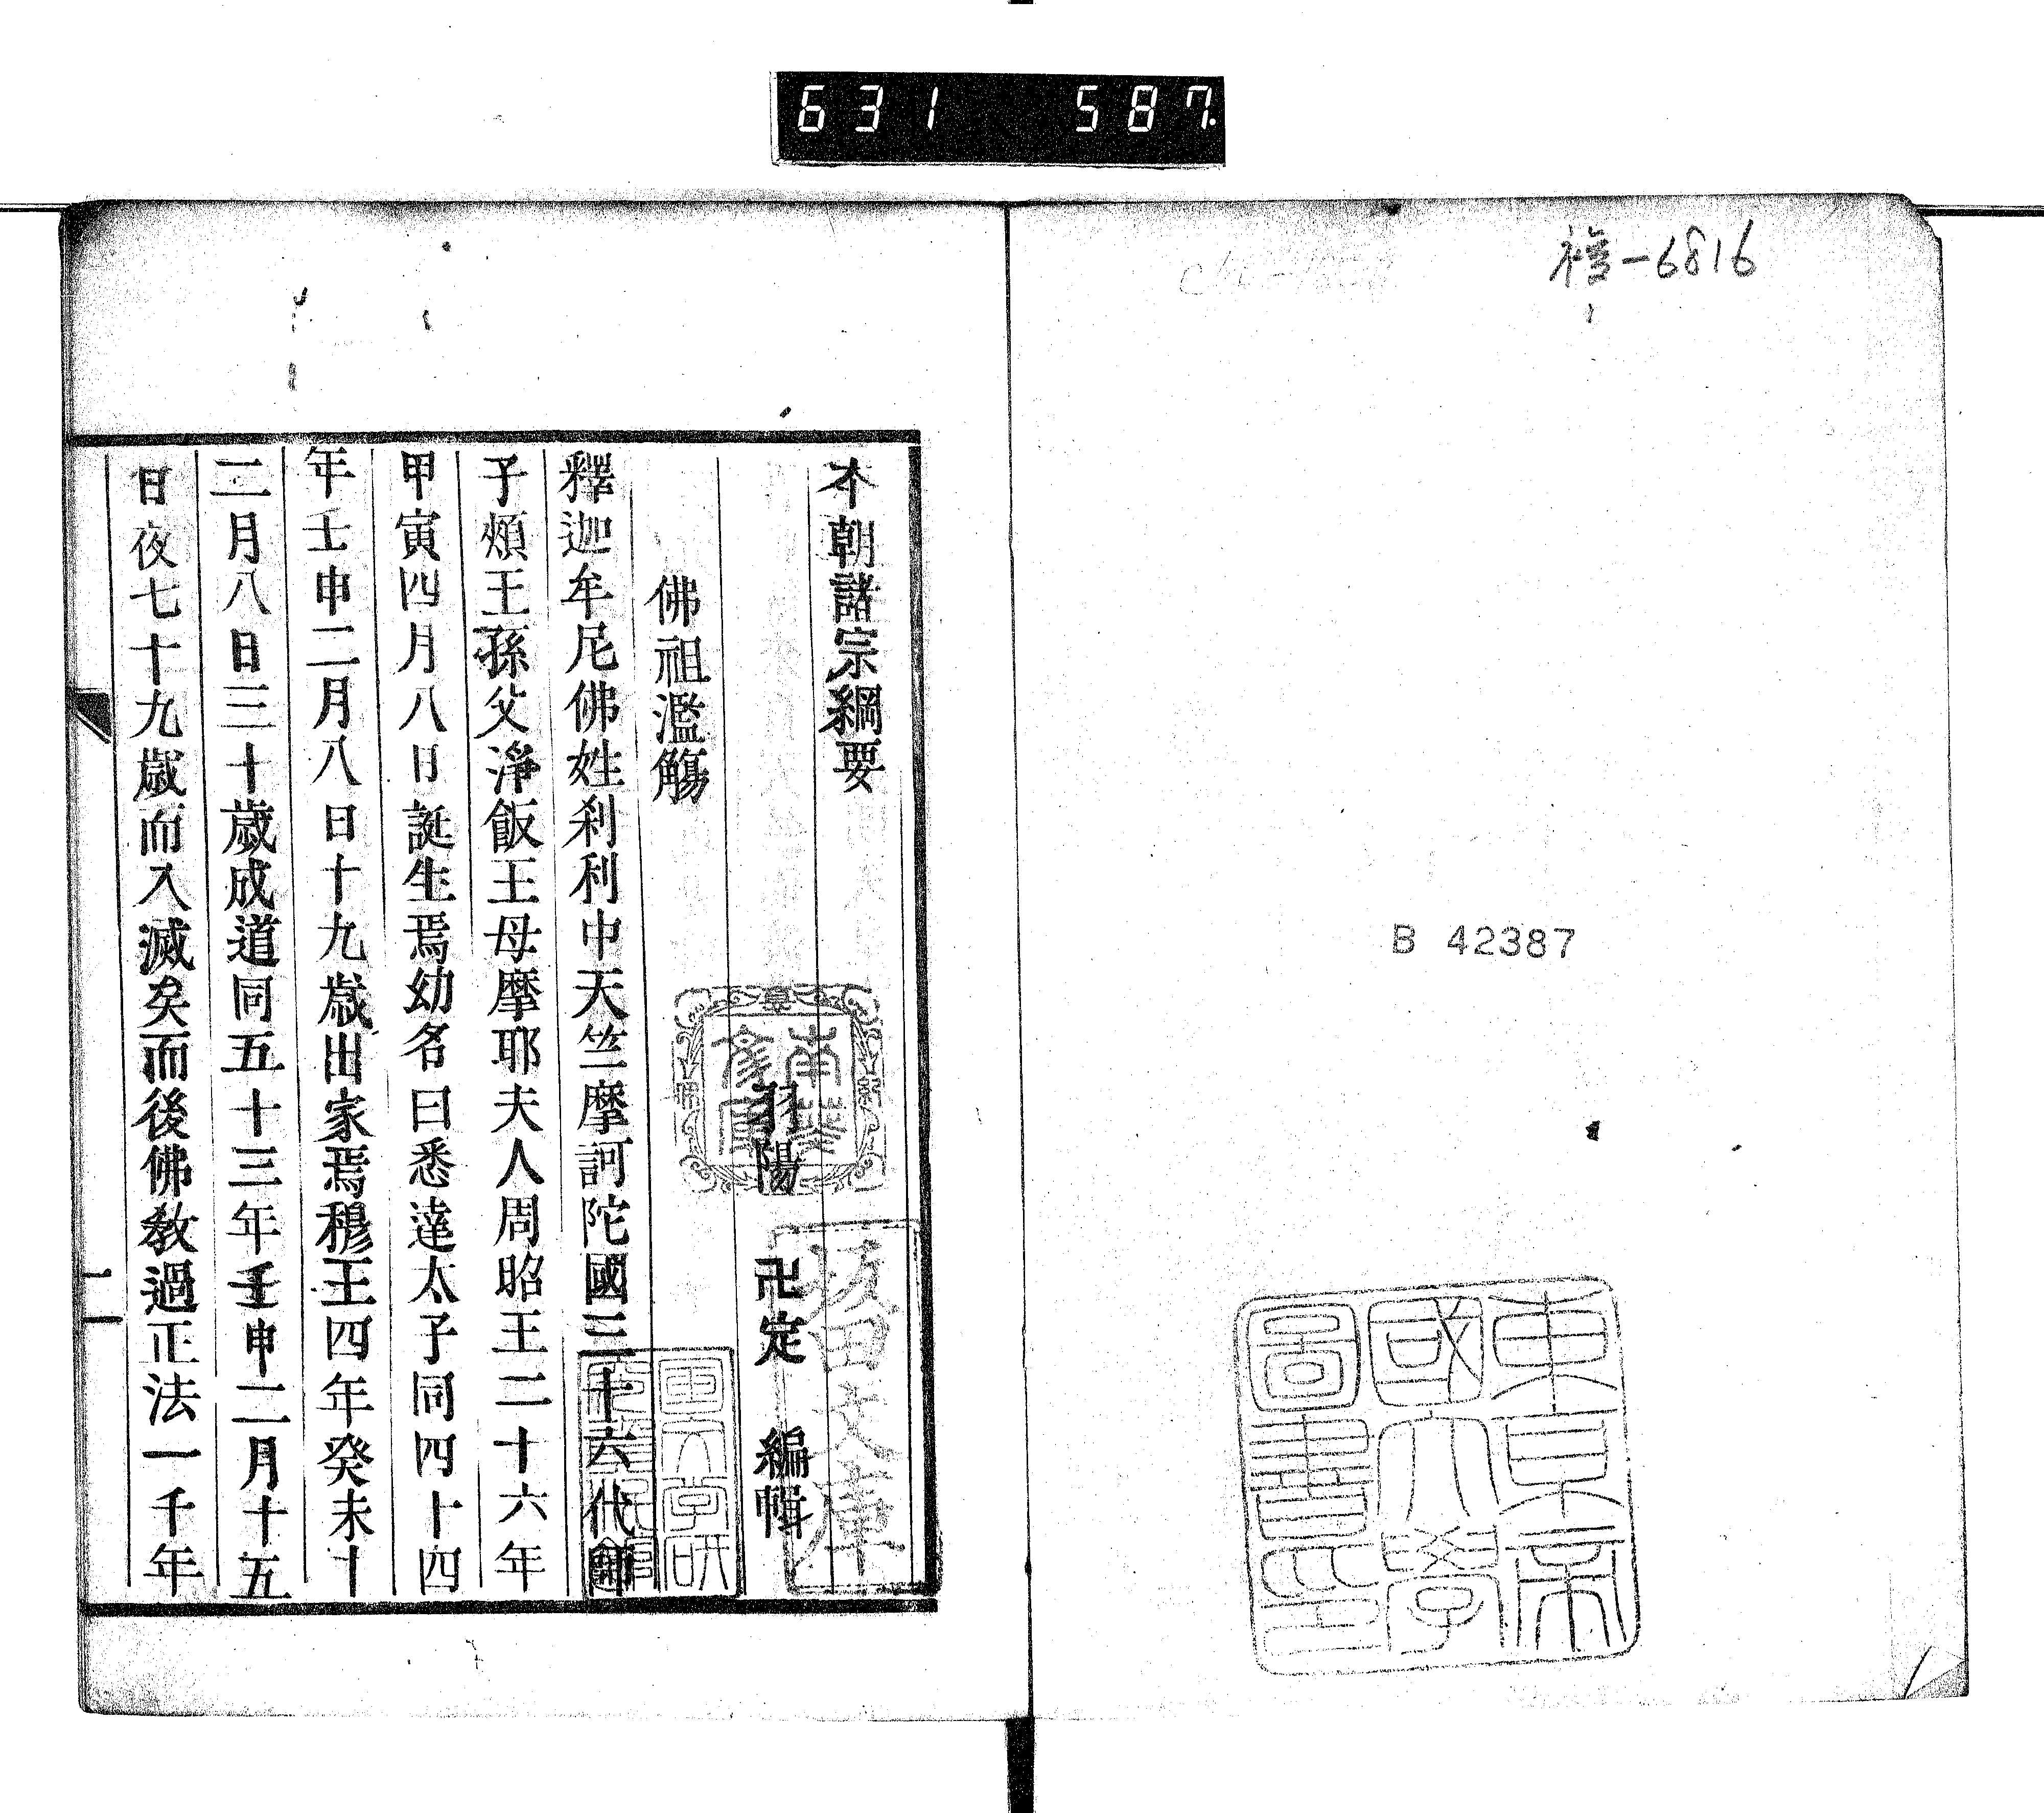 631 587.
禅-6816
B 42387
東京帝
國大學
圖書印
本朝諸宗綱要
羽陽 卍定 編輯
佛祖濫觴
釋迦牟尼佛姓刹利中天竺摩訶陀國三十六代師
子頰王孫父淨飯王母摩耶夫人周昭王二十六年
甲寅四月八日誕生焉幼名曰悉達太子同四十四
年壬申二月八日十九歳出家焉穆王四年癸未十
二月八日三十歲成道同五十三年壬申二月十五
日夜七十九歲而入滅矣而後佛教過正法一千年
二